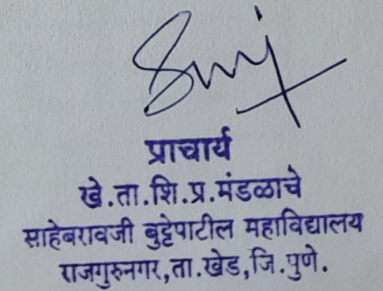 प्राचार्य
खे.ता.शि.प्र.मंडळाचे
साहेबरावजी बुट्टेपाटील महाविद्यालय
राजगुरुनगर,ता.खेड,जि.पुणे.